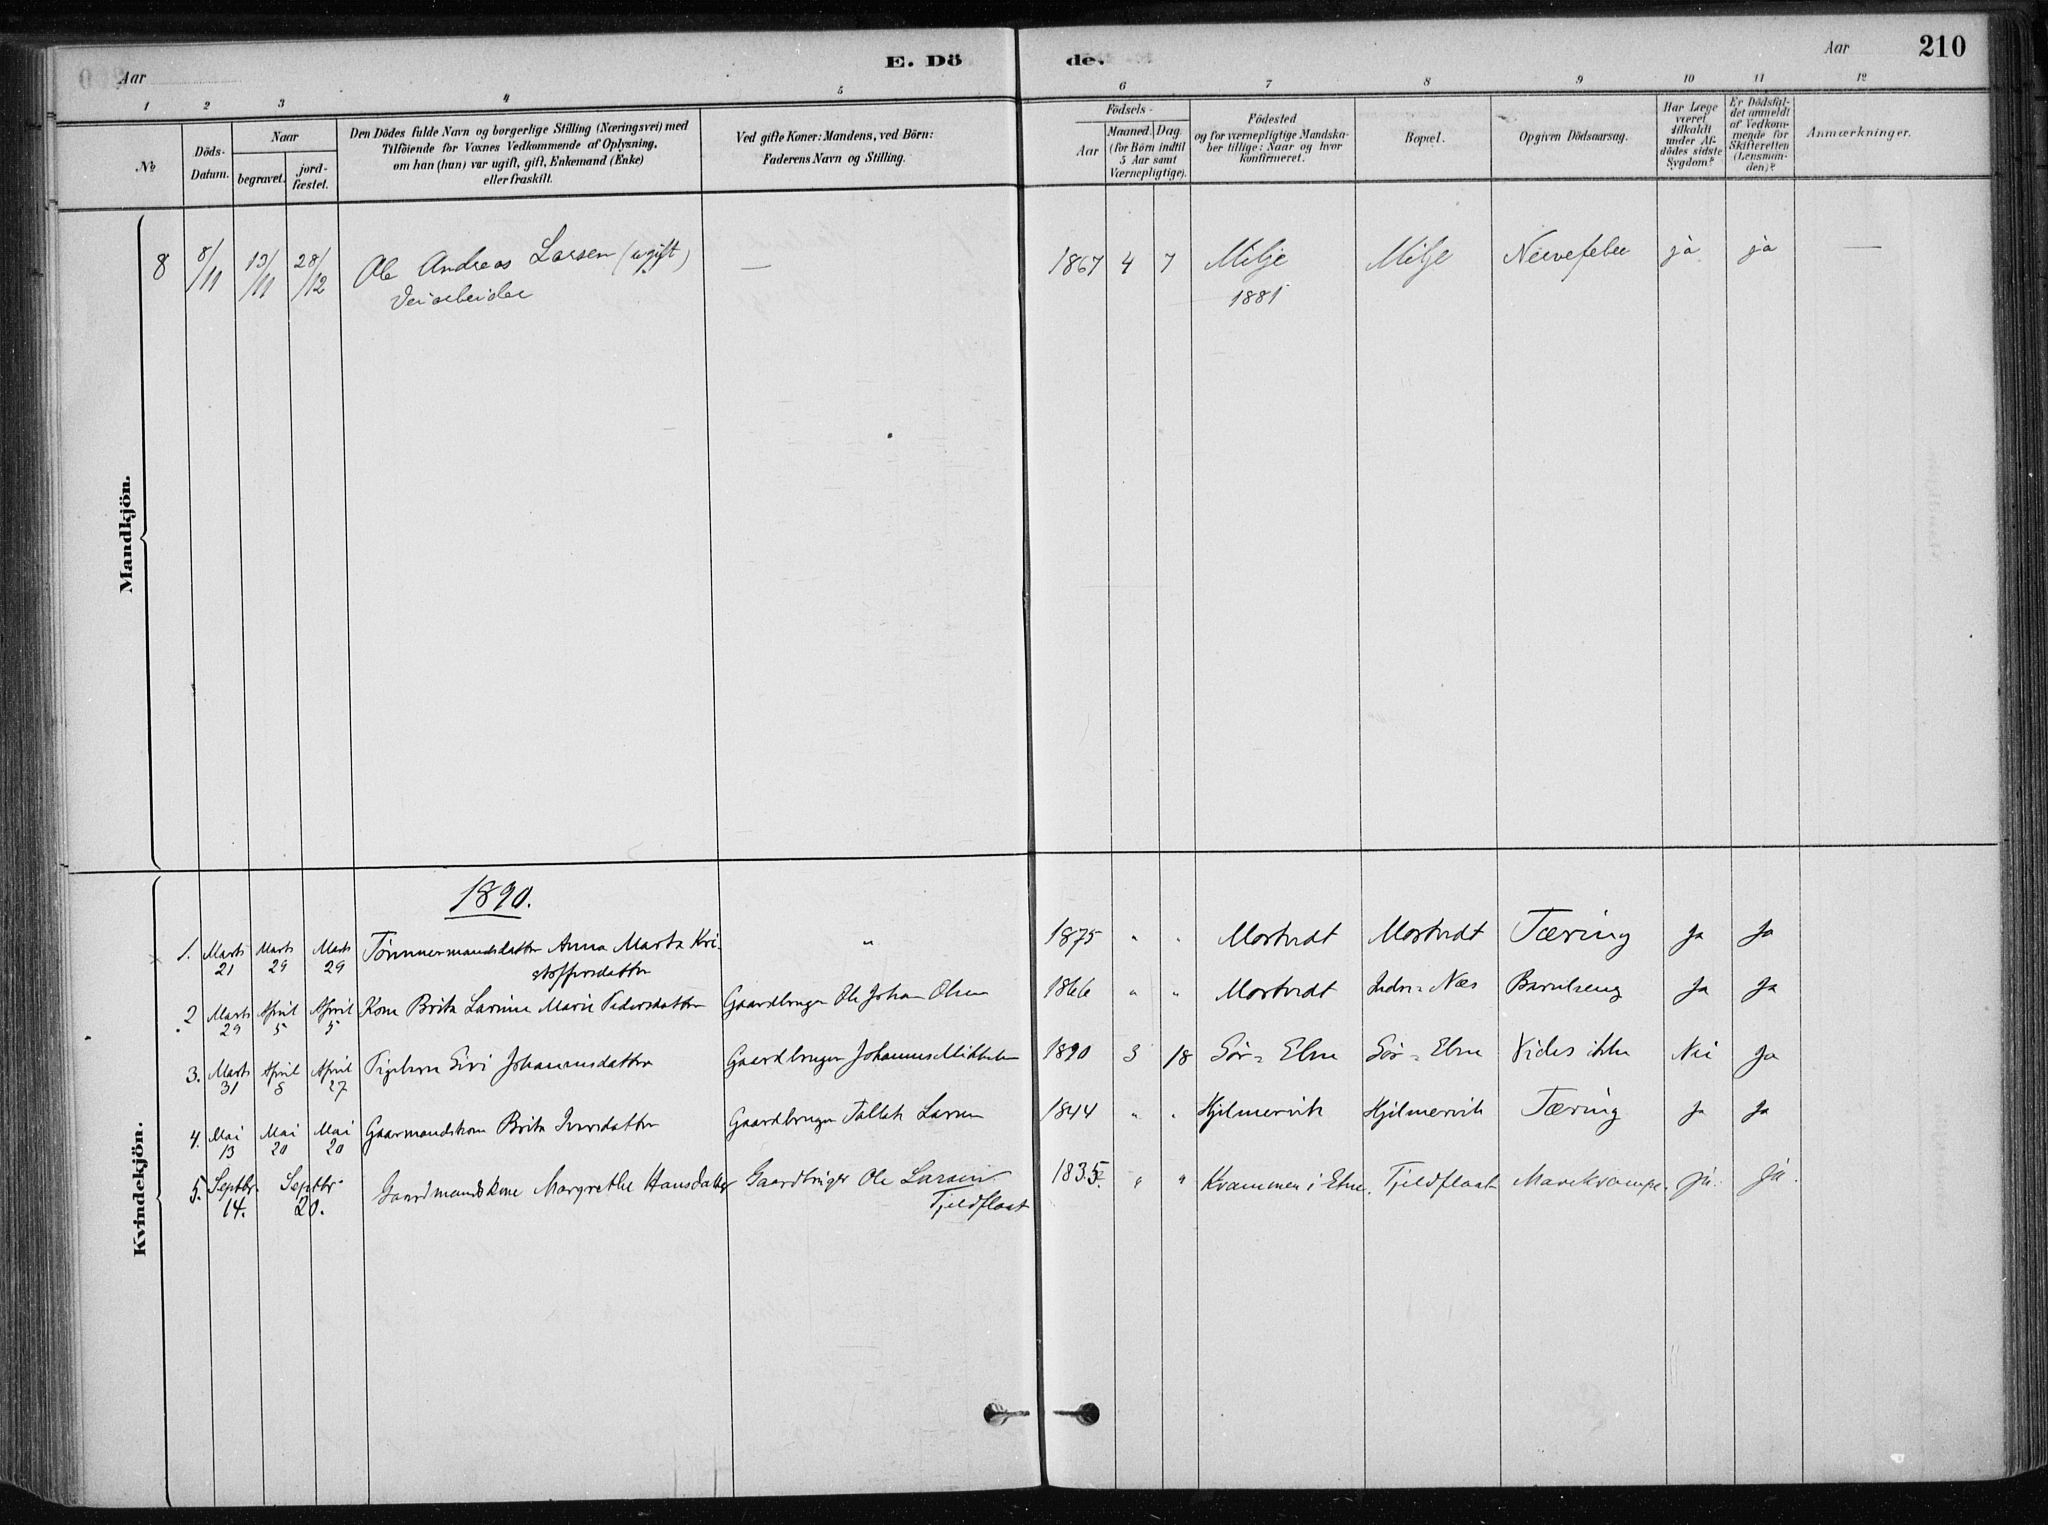 Aar
E. Dö
de.
Aar
210
1 2 3 4 5 6 7 8 9 10 11 12
No
Döds-
Datum.
Naar
begravet.
jord-
fæstet.
Den Dödes fulde Navn og borgerlige Stilling (Næringsvei) med
Tilföiende for Voxnes Vedkommende af Oplysning,
om han (hun) var ugift, gift, Enkemand (Enke)
eller fraskilt.
Ved gifte Koner: Mandens, ved Börn:
Faderens Navn og Stilling.
Födsels-
Aar
Maaned. Dag
(for Börn indtil
5 Aar samt
Værnepligtige).
Födested
og for værnepligtige Mandska-
ber tillige: Naar og hvor
konfirmeret.
Bopæl.
Opgiven Dödsaarsag.
Har Læge
været
tilkaldt
under Af-
dödes sidste
Sygdom?
Er Dödsfal-
det anmeldt
af Vedkom-
mende for
Skifteretten
(Lensman-
den)?
Anmærkninger.
Mandkjön.
8 8/11 13/11 28/12 Ole Andreas Larsen (ugift) — 1867 4 7 Milje Milje Nervefeber ja ja —
Veiarbeider 1881
Kvindekjön.
1890.
1. Marts 21 Marts 29 Marts 29 Tømmermandsdatter Anna Marta Kri- " 1875 " " Mortvedt Mortvedt Tæring Ja Ja
stoffersdatter
2 Marts 29 April 5 April 5 Kone Brita Larsine Marie Pedersdatter Gaardbruger Ole Johan Olsen 1866 " " Mortvedt Indre=Næs Barnlseng Ja Ja
3. Marts 31 April 8 April 27 Pigebarn Siri Johannesdatter Gaardbruger Johannes Mikkelsen 1890 3 18 Sör=Elne Sör=Elne Vides ikke Nei Ja
4. Mai 13 Mai 20 Mai 20 Gaarmandskone Brita Iversdatter Gaardbruger Tallak Larsen 1844 " " Hjelmervik Hjelmervik Tæring Ja Ja
5. Septbr. 14. Septbr 20. Gaardmandskone Margrethe Hansdatter Gaardbruger Ole Larsen 1835. " " Kvammen i Etne. Tjeldflaat Mavekrampe. Ja. Ja.
Tjeldflaat